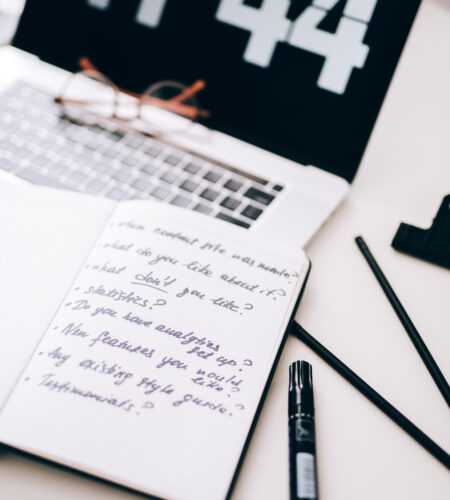 44
when contact site was made?
• what do you like about it?
• what don't you like?
• statistics?
• Do you have analytics
set up?
• New features you would
like?
• Any existing style guide?
• Testimonials?